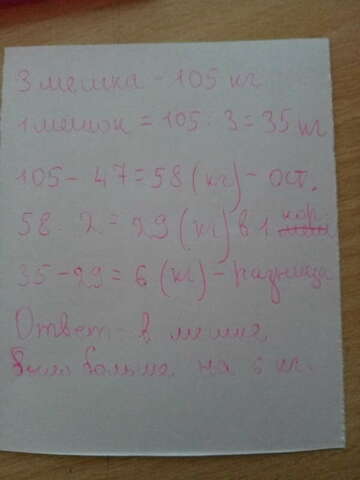 3 мешка - 105 кг
1 мешок = 105 : 3 = 35 кг
105 - 47 = 58 (кг) - ост.
58 : 2 = 29 (кг) в 1 кор.
35 - 29 = 6 (кг) - разница
Ответ - в мешке
было больше на 6 кг.